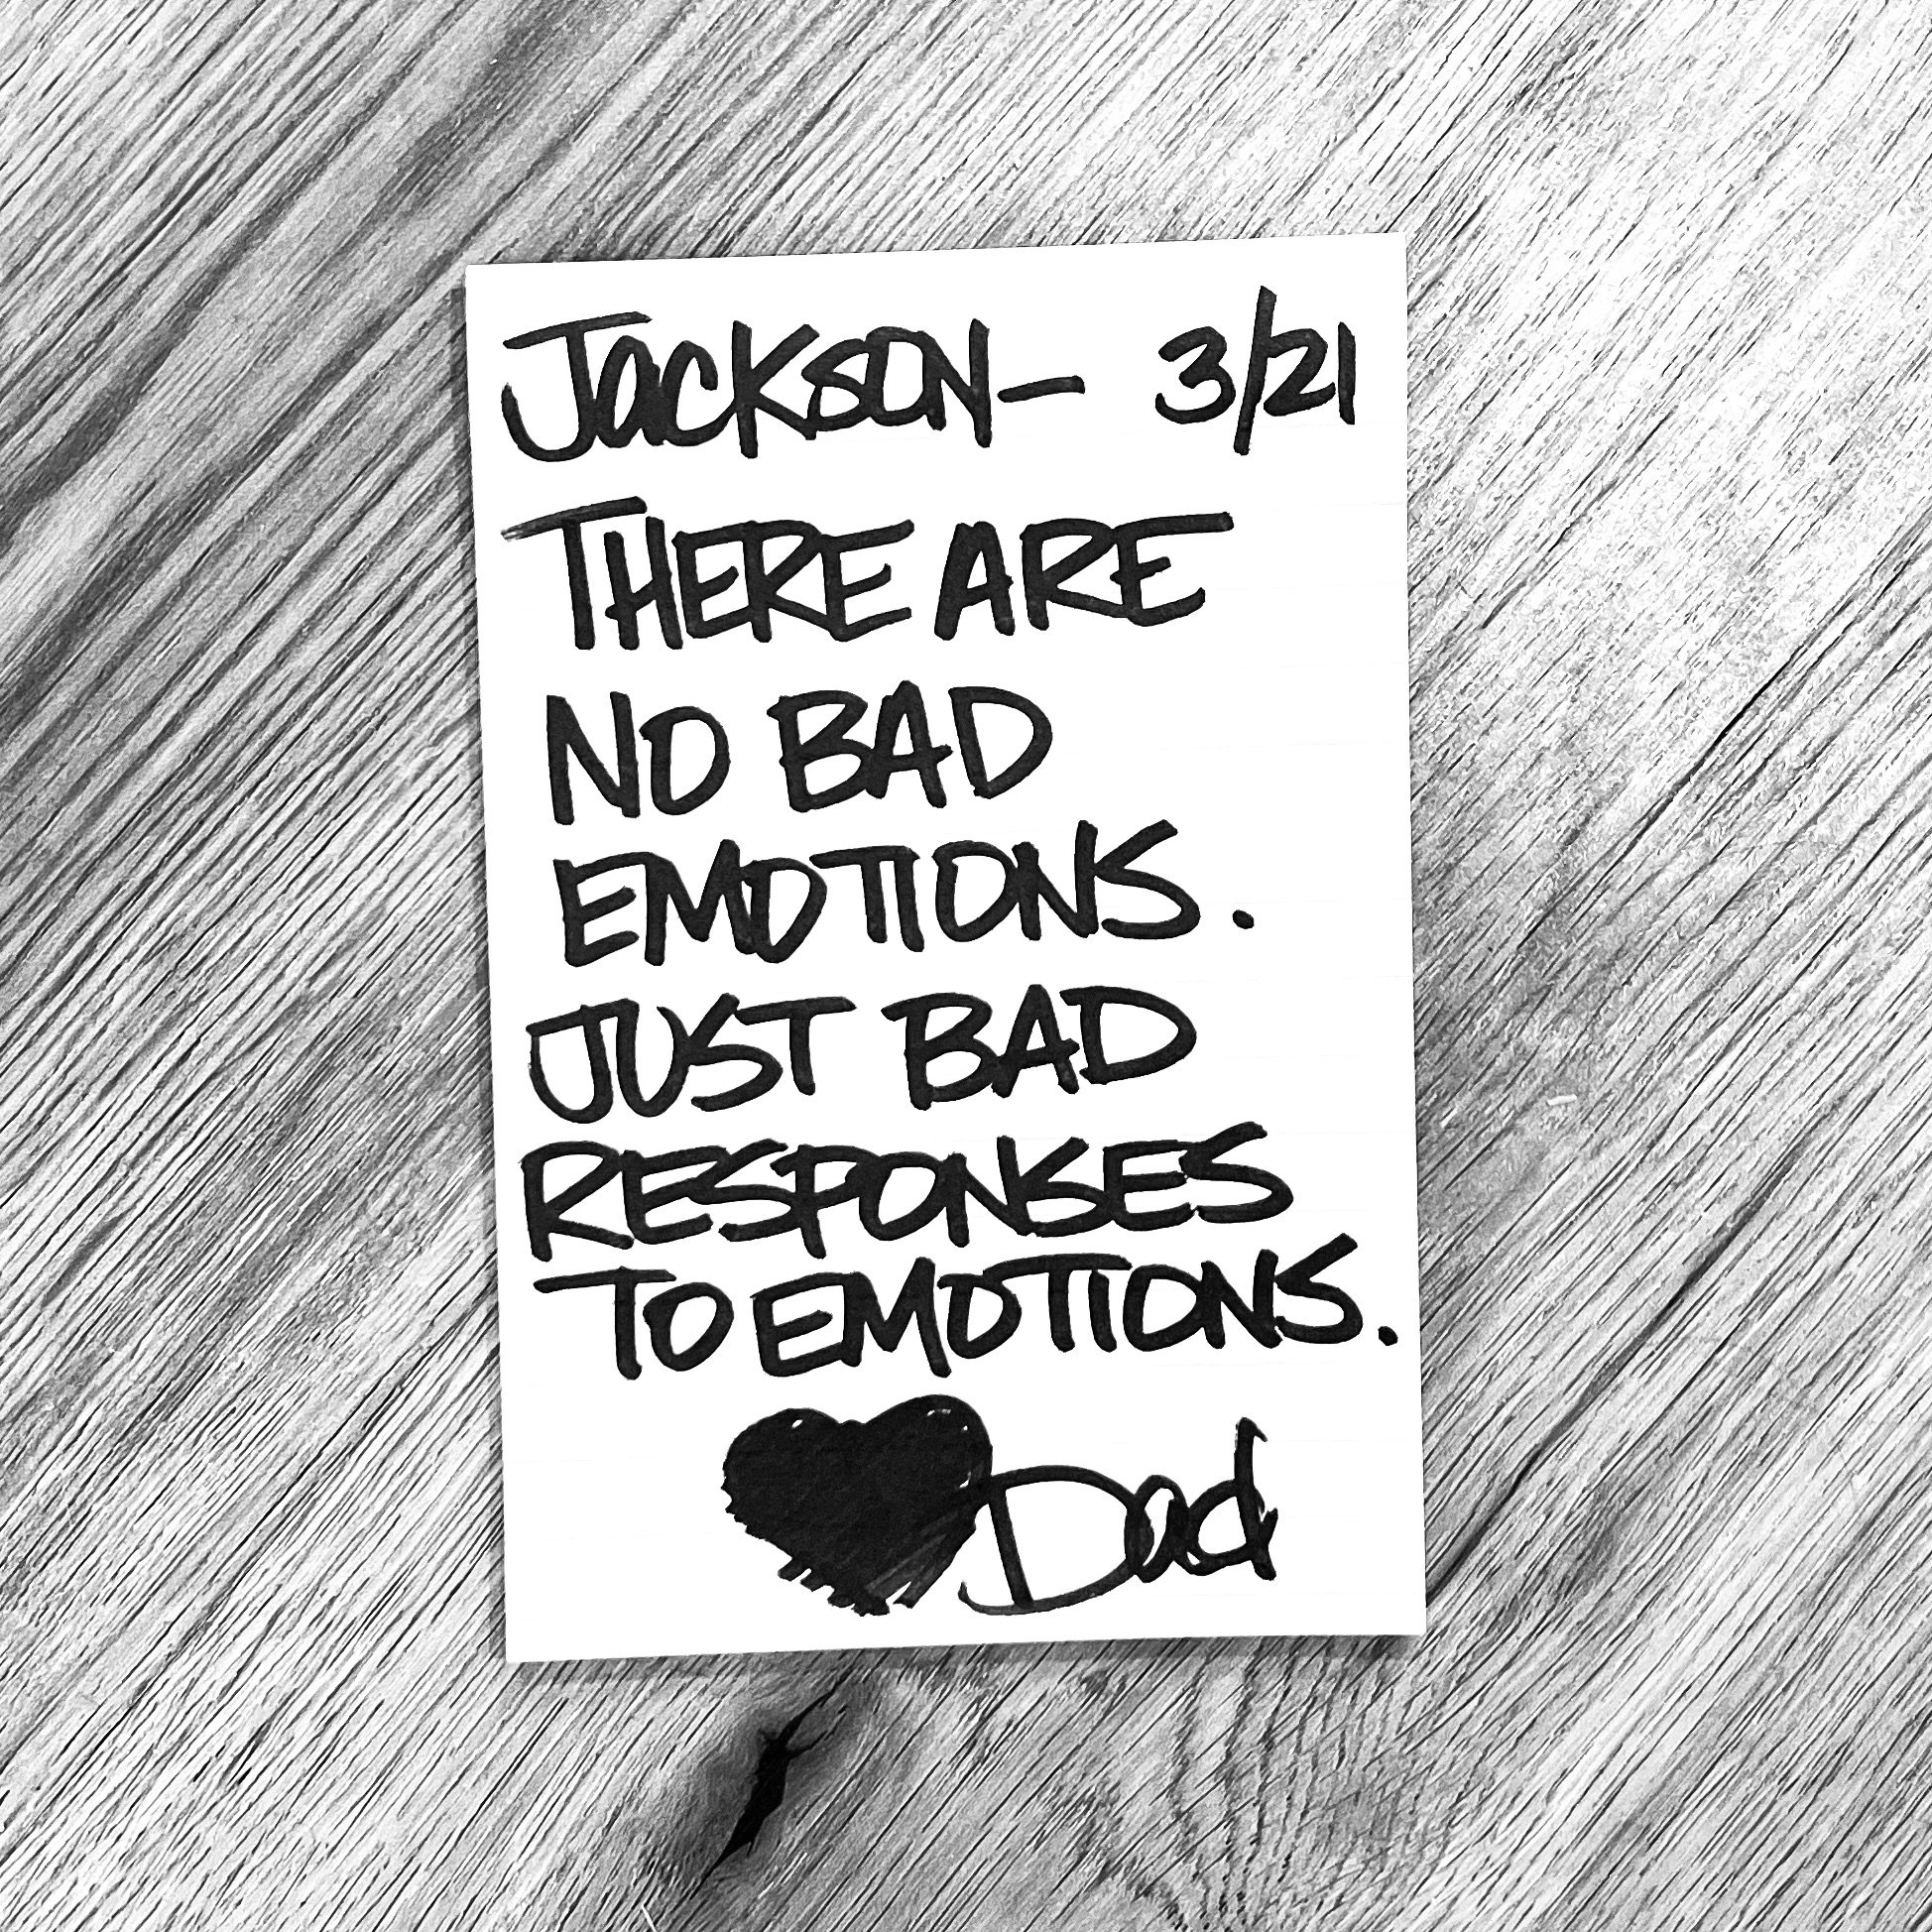 Jackson- 3/21
THERE ARE
NO BAD
EMOTIONS.
JUST BAD
RESPONSES
TO EMOTIONS.
Dad